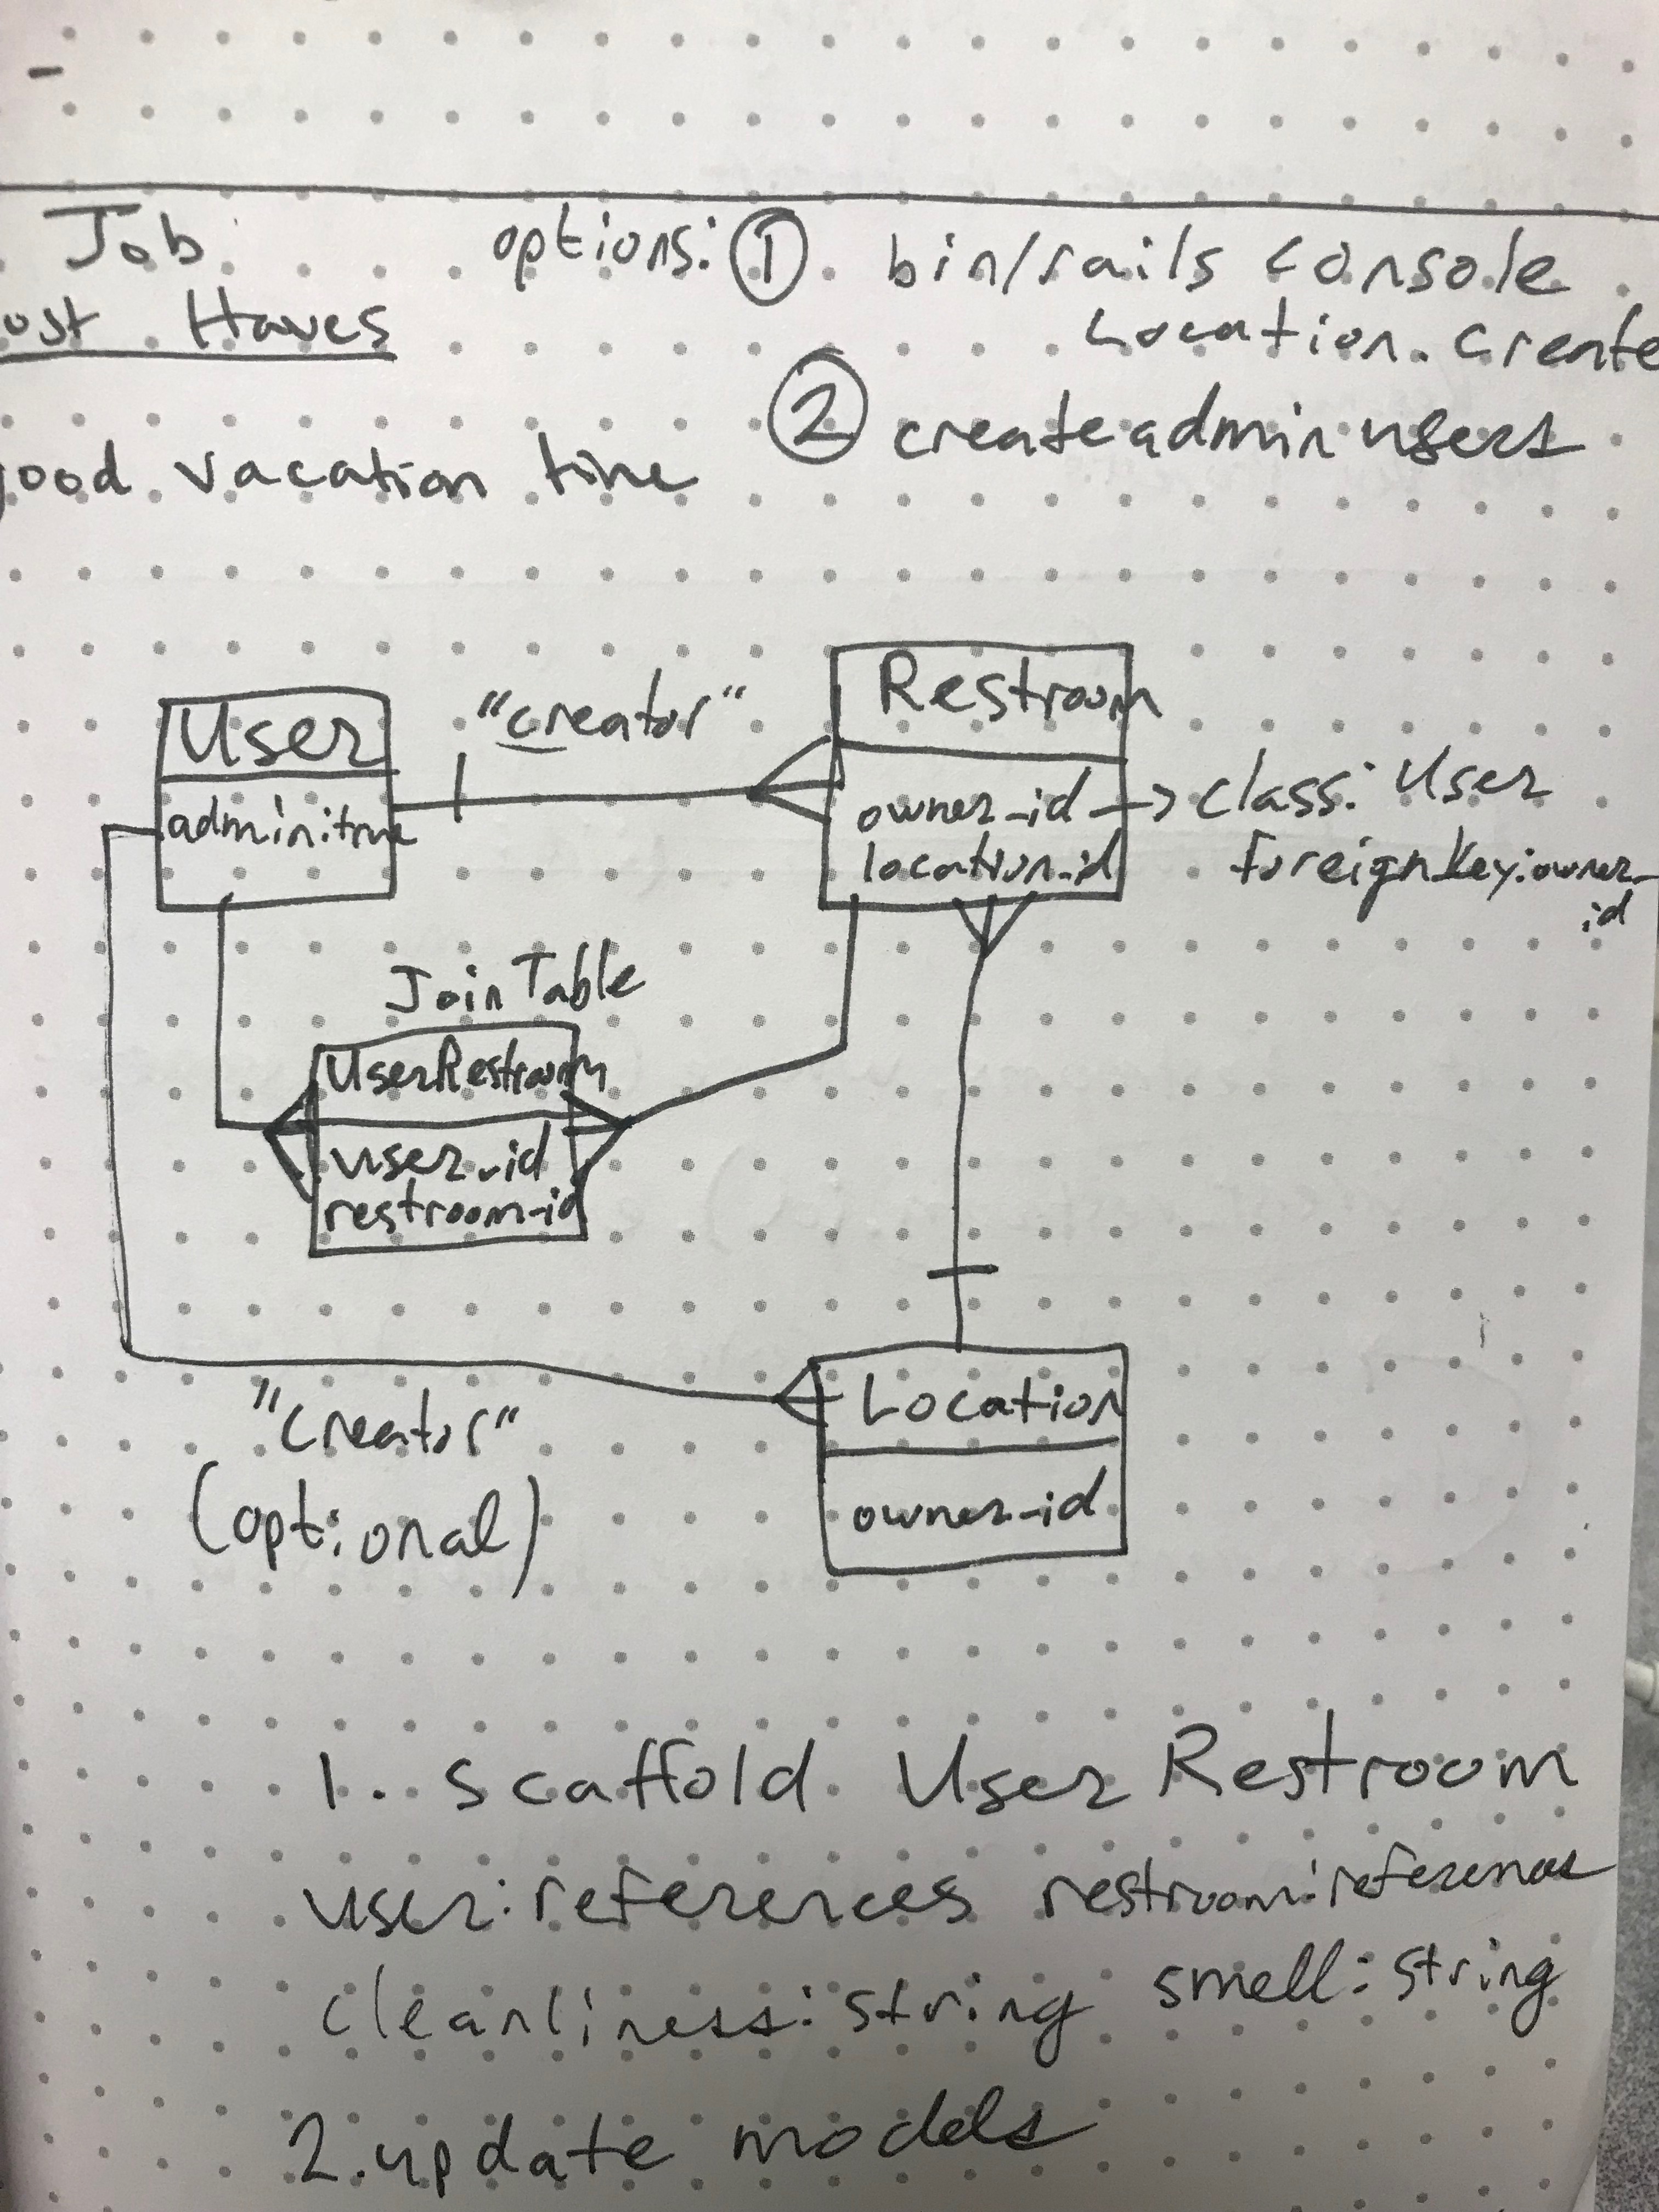 Job
ust Haves
ood vacation time
options: ① bin/rails console
Location.create
② create admin users
User
admin:true
"creator"
Restroom
owner_id → class: User
location_id
foreignkey:owner_
id
Join Table
UserRestroom
user_id
restroom_id
"creator"
(optional)
Location
owner_id
1. scaffold UserRestroom
user:references restroom:references
cleanliness:string smell:string
2. update models